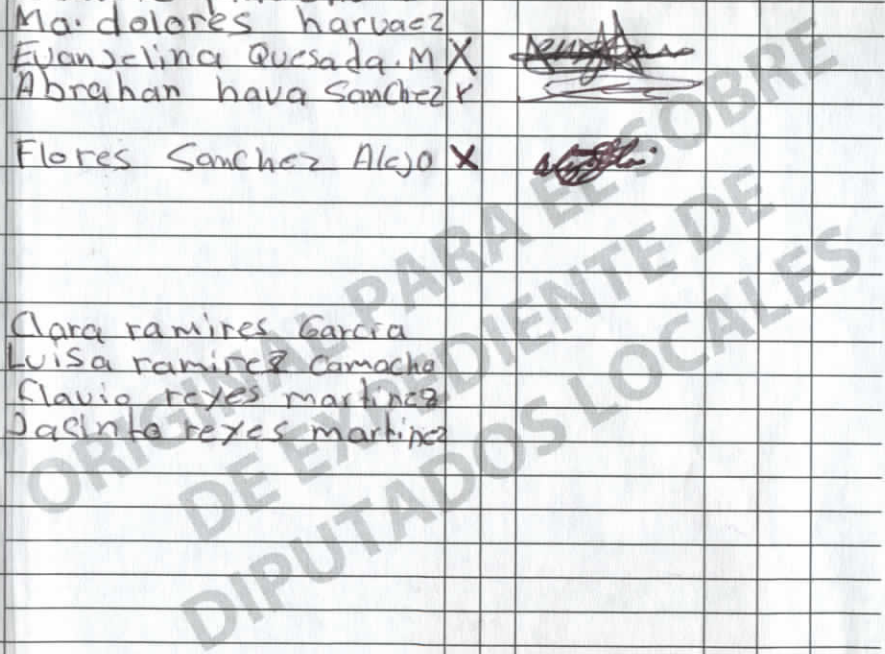 Ma. dolores harvaez
Evanjelina Quesada.M X
Abrahan hava Sanchez x
Flores Sanchez Alejo X
Clara ramires Garcia
Luisa ramirez Camacho
Flavio reyes martinez
Jasinto reyes martinez
ORIGINAL PARA EL SOBRE
DE EXPEDIENTE DE
DIPUTADOS LOCALES